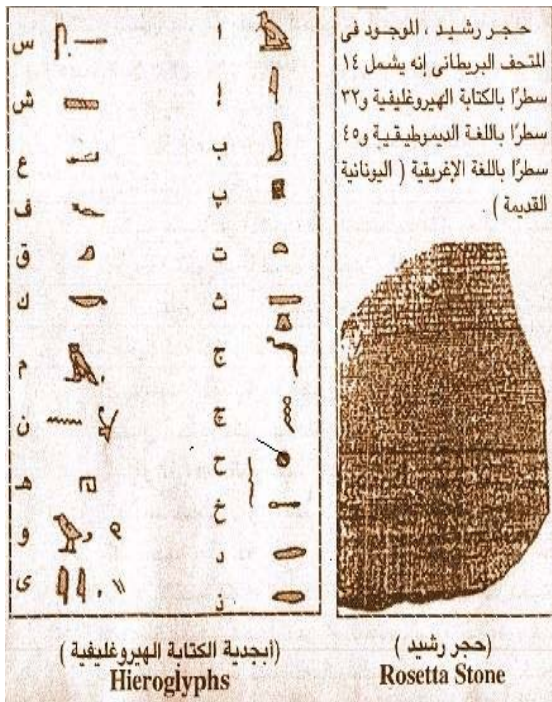 حجر رشيد ، الموجود فى
المتحف البريطانى إنه يشمل ١٤
سطرًا بالكتابة الهيروغليفية و٣٢
سطرًا باللغة الديموطيقية و٤٥
سطرًا باللغة الإغريقية ( اليونانية
القديمة ) .
ا
إ
ب
پ
ت
ث
ج
چ
ح
خ
د
ذ
س
ش
ع
ف
ق
ك
م
ن
هـ
و
ى
(حجر رشيد )
Rosetta Stone
(أبجدية الكتابة الهيروغليفية )
Hieroglyphs